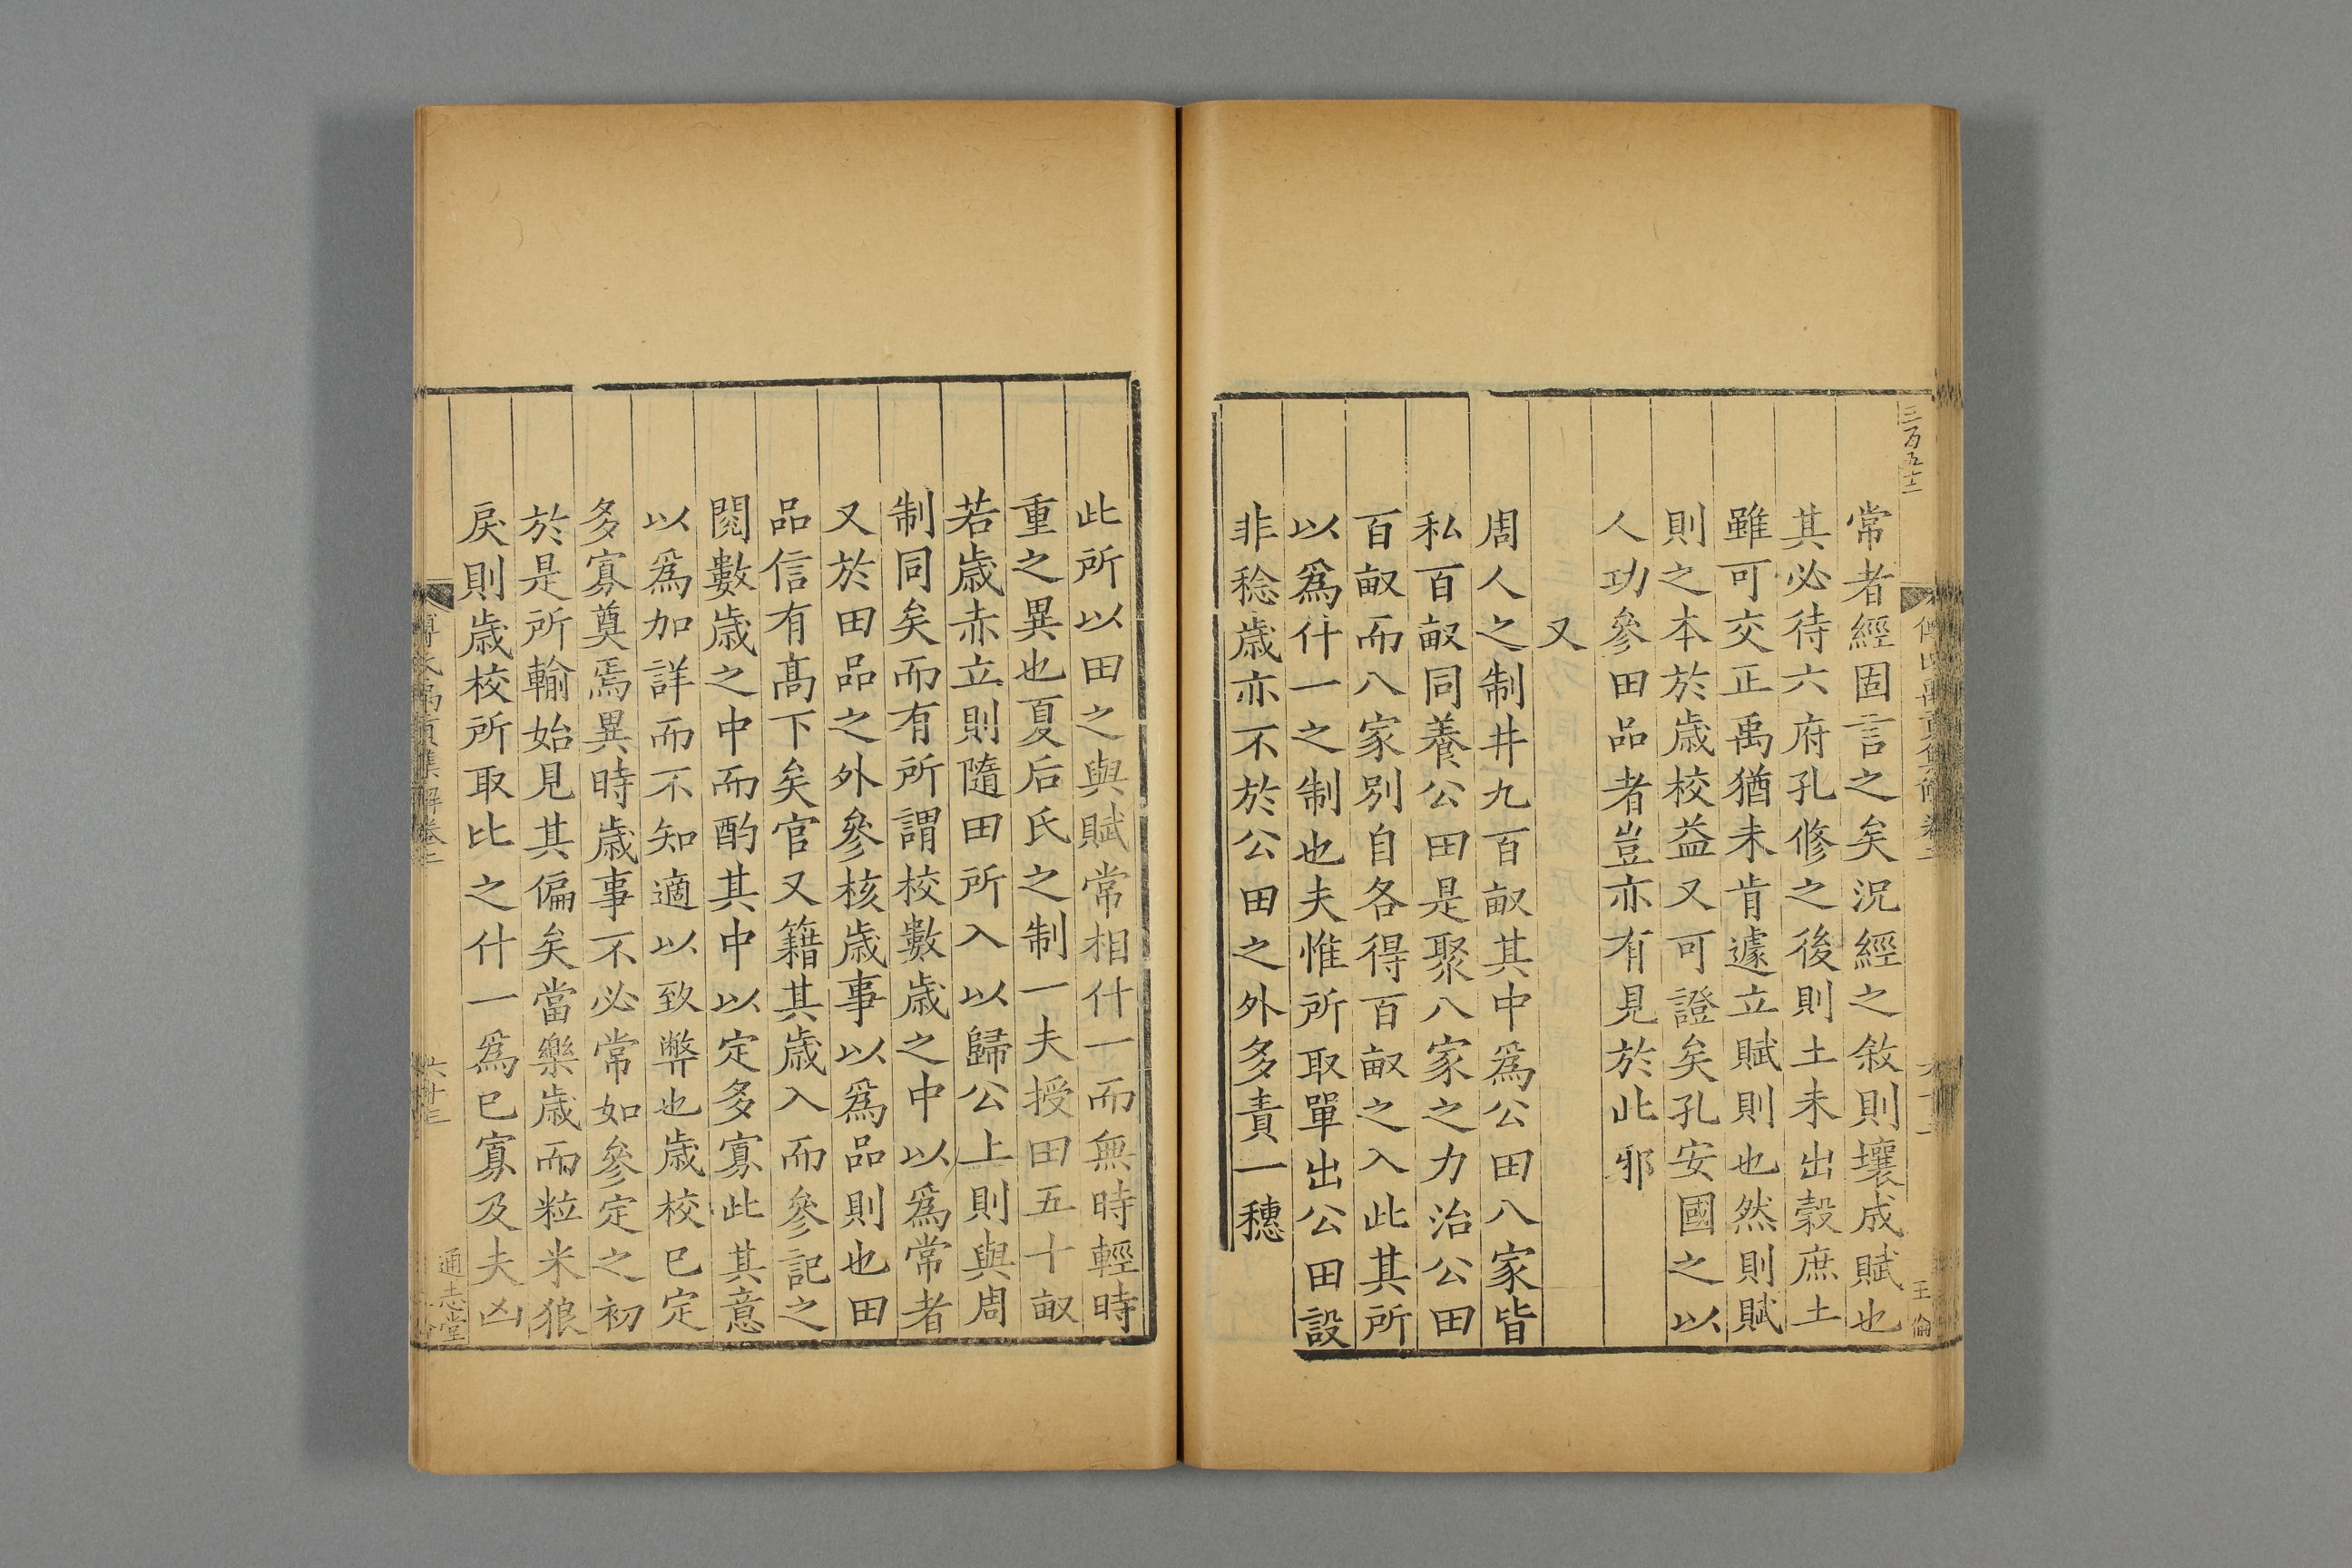 三百五十二
常者經固言之矣況經之敘則壤成賦也
其必待六府孔修之後則土未出穀庶土
雖可交正禹猶未肯遽立賦則也然則賦
則之本於歲校益又可證矣孔安國之以
人功參田品者豈亦有見於此邪
又
周人之制井九百畝其中為公田八家皆
私百畝同養公田是聚八家之力治公田
百畝而八家別自各得百畝之入此其所
以爲什一之制也夫惟所取單出公田設
非稔歲亦不於公田之外多責一穗
王倫
此所以田之與賦常相什一而無時輕時
重之異也夏后氏之制一夫授田五十畝
若歲赤立則隨田所入以歸公上則與周
制同矣而有所謂校數歲之中以爲常者
又於田品之外參核歲事以爲品則也田
品信有髙下矣官又籍其歲入而參記之
閱數歲之中而酌其中以定多寡此其意
以爲加詳而不知適以致弊也歲校已定
多寡奠焉異時歲事不必常如參定之初
於是所輸始見其偏矣當樂歲而粒米狼
戾則歲校所取比之什一爲已寡及夫凶
傅氏禹貢集解卷二
通志堂